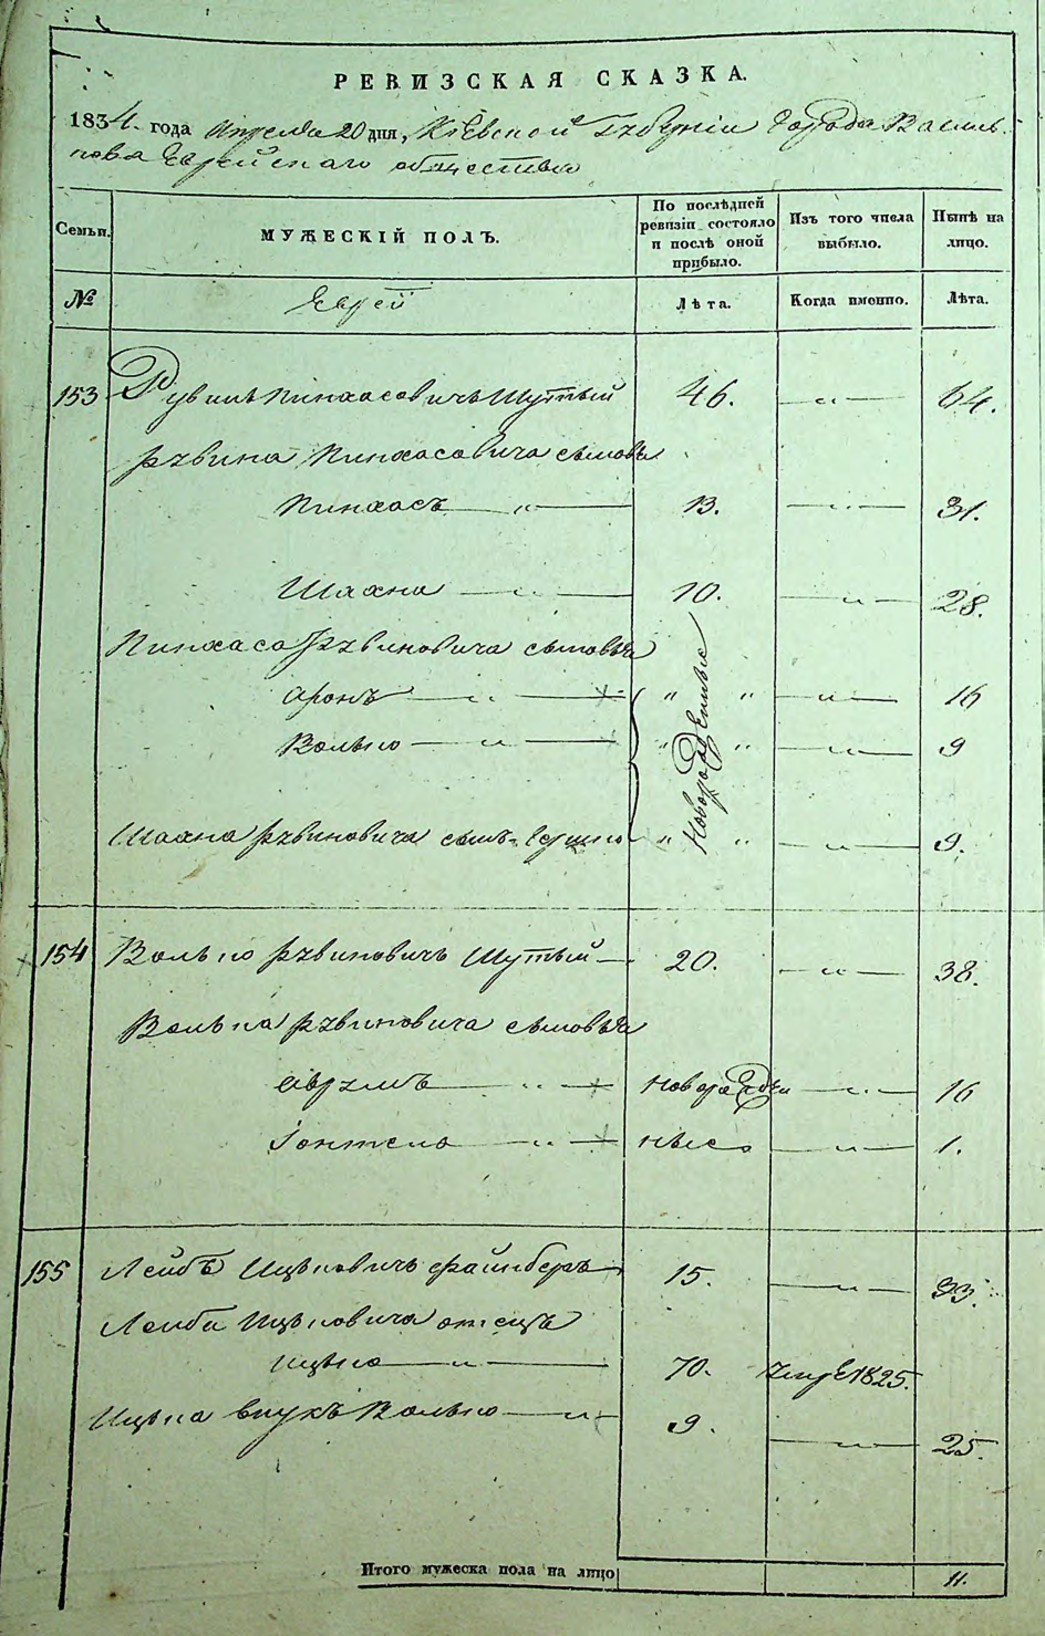 РЕВИЗСКАЯ СКАЗКА.
1834. года Апреля 20 дня, Кіевской Губерніи города Василь-
кова Еврейскаго общества
Семьи.
МУЖЕСКІЙ ПОЛЪ.
По послѣдней ревизіи состояло и послѣ оной прибыло.
Изъ того числа выбыло.
Нынѣ на лицо.
№
Еврей
Лѣта.
Когда именно.
Лѣта.
153 Рувинъ Пинхасовичъ Шутый 46. — „ — 64.
Рувина Пинхасовича сыновья
Пинхасъ — „ — 13. — „ — 31.
Шахна — „ — 10. — „ — 28.
Пинхаса Рувиновича сыновья
Аронъ — „ — „ „ — „ — 16
Волько — „ — „ „ — „ — 9
Новорожденные
Шахна Рувиновича сынъ Гершко „ „ — „ — 9.
154 Волько Рувиновичъ Шутый — 20. — „ — 38.
Волька Рувиновича сыновья
Аврумъ — „ — новорожден — „ — 16
Іонтель — „ — ные — „ — 1.
155 Лейбъ Ицковичъ Файнберъ 15. — „ — 33.
Лейби Ицковича отецъ
Ицко — „ — 70. умре 1825.
Ицка внукъ Волько — „ — 9. — „ — 25.
Итого мужеска пола на лицо 11.